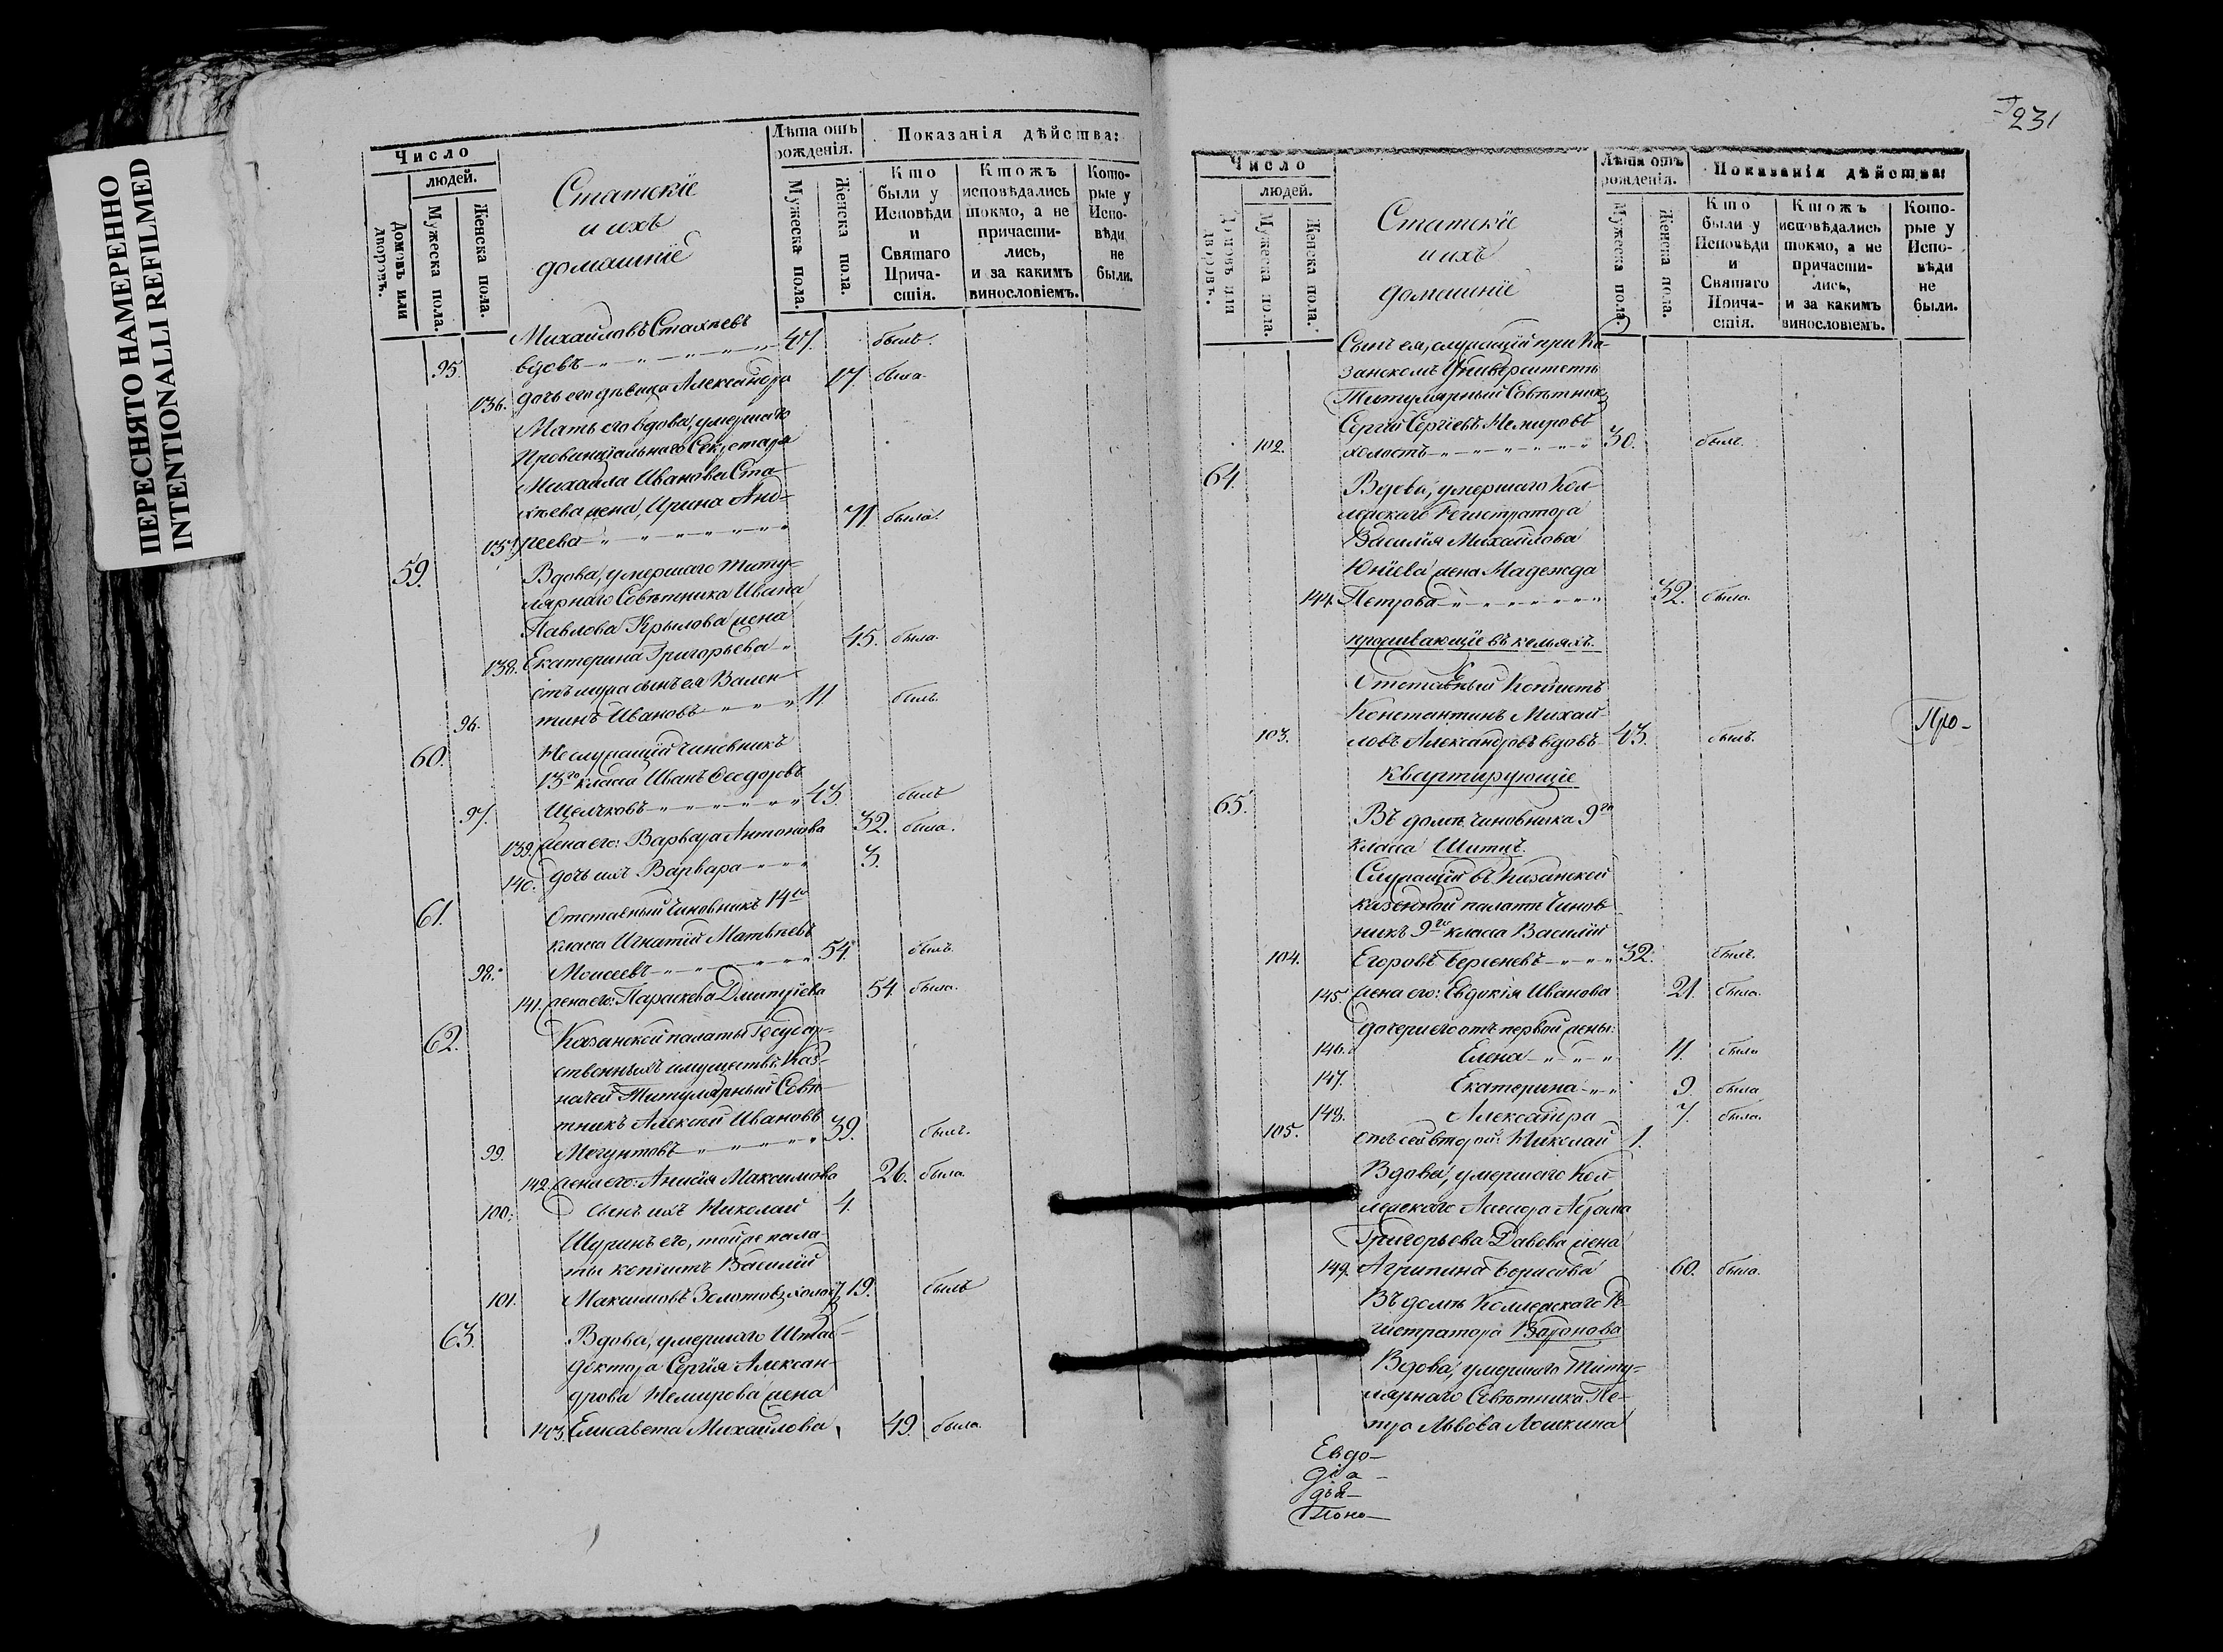 ПЕРЕСНЯТО НАМЕРЕННО
INTENTIONALLI REFILMED
Число
людей.
Домовъ или дворовъ.
Мужеска пола.
Женска пола.
Статскіе
и ихъ
домашніе
Лѣта отъ рожденія.
Мужеска пола.
Женска пола.
Показанія дѣйства:
Кто были у Исповѣди и Святаго Прича-стія.
Ктожъ исповѣдались токмо, а не причасти-лись, и за какимъ винословіемъ.
Кото-рые у Испо-вѣди не были.
Михайловъ Стахѣевъ
95. вдовъ 47. былъ.
136. дочь его дѣвица Александра 17. была.
Мать его вдова, умершаго
Провинціальнаго Секретаря
Михаила Иванова Ста-
хѣева жена, Ирина Анд-
137. реева 71 была.
59. Вдова, умершаго титу-
лярнаго Совѣтника Ивана
Павлова Крылова жена
138. Екатерина Григорьева 45. была.
отъ мужа сынъ ея Вален-
96. тинъ Ивановъ 11. былъ.
60. Неслужащій чиновникъ
13го класса Иванъ Ѳеодоровъ
97. Щелчковъ 43. былъ
139. жена его: Варвара Антонова 32. была.
140. дочь ихъ Варвара 3.
61. Отставный чиновникъ 14го
класса Игнатій Матвѣевъ
98. Моисеевъ 54. былъ.
141. жена его: Параскева Димитріева 54. была.
62. Казанской палаты Государ-
ственныхъ имуществъ Каз-
начей Титулярный Совѣ-
тникъ Алексей Ивановъ
99. 39. былъ.
142. жена его: Анисія Максимова 26. была.
100. сынъ ихъ Николай 4.
Шуринъ его, тойже пала-
ты копіистъ Василій
101. Максимовъ Золотовъ, холос. 19. былъ
63. Вдова, умершаго Штаб-
доктора Сергія Алексан-
дрова Немирова жена
143. Елисавета Михайлова 49. была.
231
Число
людей.
Домовъ или дворовъ.
Мужеска пола.
Женска пола.
Статскіе
и ихъ
домашніе
Лѣта отъ рожденія.
Мужеска пола.
Женска пола.
Показанія дѣйства:
Кто были у Исповѣди и Святаго Прича-стія.
Ктожъ исповѣдались токмо, а не причасти-лись, и за какимъ винословіемъ.
Кото-рые у Испо-вѣди не были.
Сынъ ея, служащій при Ка-
занскомъ Университетѣ
Титулярный Совѣтникъ
Сергій Сергіевъ Немировъ
102. холостъ 30. былъ.
64. Вдова, умершаго Кол-
лежскаго Регистратора
Василія Михайлова
Юніева жена Надежда
144. Петрова 32. была.
проживающіе въ кельяхъ.
Отставный Копіистъ
Константинъ Михай-
103. ловъ Александровъ вдовъ 43. былъ.
Про-
квартирующіе
65. Въ домѣ чиновника 9го
класса Шитъ.
Служащій въ Казанской
казенной палатѣ Чинов-
никъ 9го класса Василій
104. Егоровъ Берсеневъ 32. былъ.
145. жена его: Евдокія Иванова 21. была.
дочери его отъ первой жены:
146. Елена 11. была
147. Екатерина 9. была
148. Александра 7. была.
105. отъ сей второй: Николай 1.
Вдова, умершаго Кол-
лежскаго Асессора Абрама
Григорьева Давова жена
149. Агрипина Борисова 60. была.
Въ домѣ Коллежскаго Ре-
гистратора Баронова
Вдова, умершаго Титу-
лярнаго Совѣтника Пе-
тра Львова Лошкина
Евдо-
діа-
дья-
Поно-